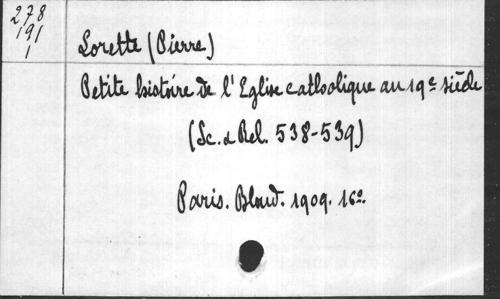 278
191
1
Lorette (Pierre)
Petite histoire de l'Eglise catholique au 19e siècle
(Sc. et Rel. 538-539)
Paris. Bloud. 1909. 16o.